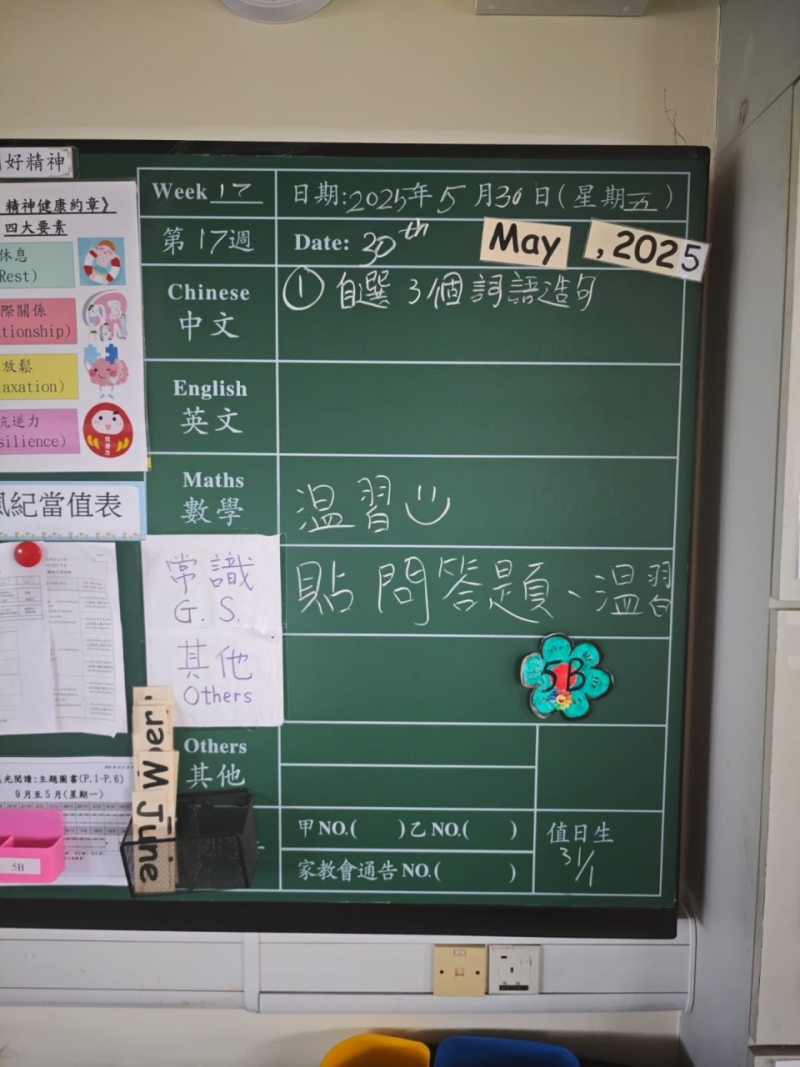 好精神
精神健康約章》
四大要素
休息
Rest)
際關係
tionship)
放鬆
axation)
抗逆力
silience)
風紀當值表
Week 17
日期:2025年5月30日(星期五)
第17週
Date: 30th May ,2025
Chinese
中文
① 自選3個詞語造句
English
英文
Maths
數學
温習
常識
G.S.
貼問答題、温習
其他
Others
5B
Others
其他
甲NO.( )乙NO.( )
家教會通告NO.( )
值日生
31/1
光閱讀:主題圖書(P.1-P.6)
9月至5月(星期一)
ber
M
June
5B